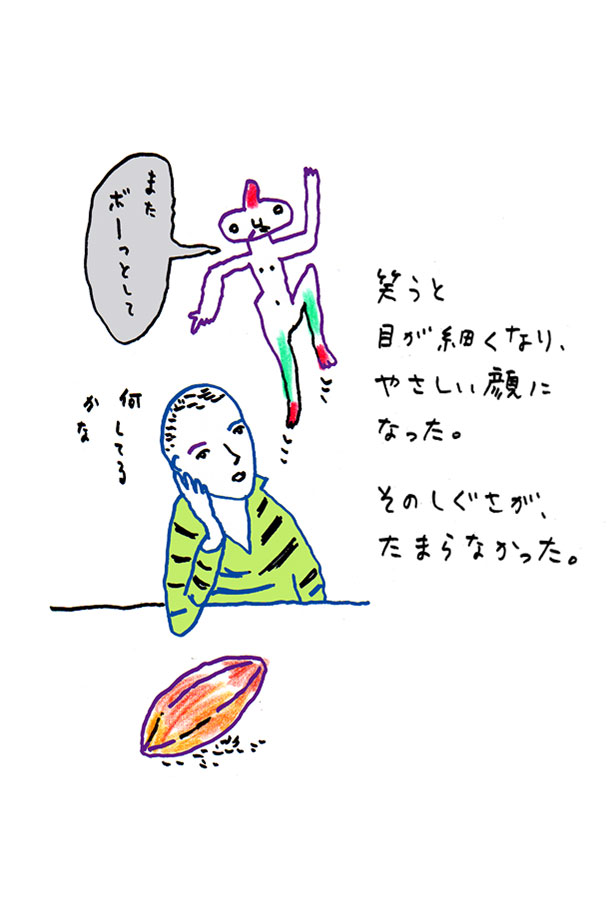 また
ボーっとして
何してる
かな
笑うと
目が細くなり、
やさしい顔に
なった。
そのしぐさが、
たまらなかった。